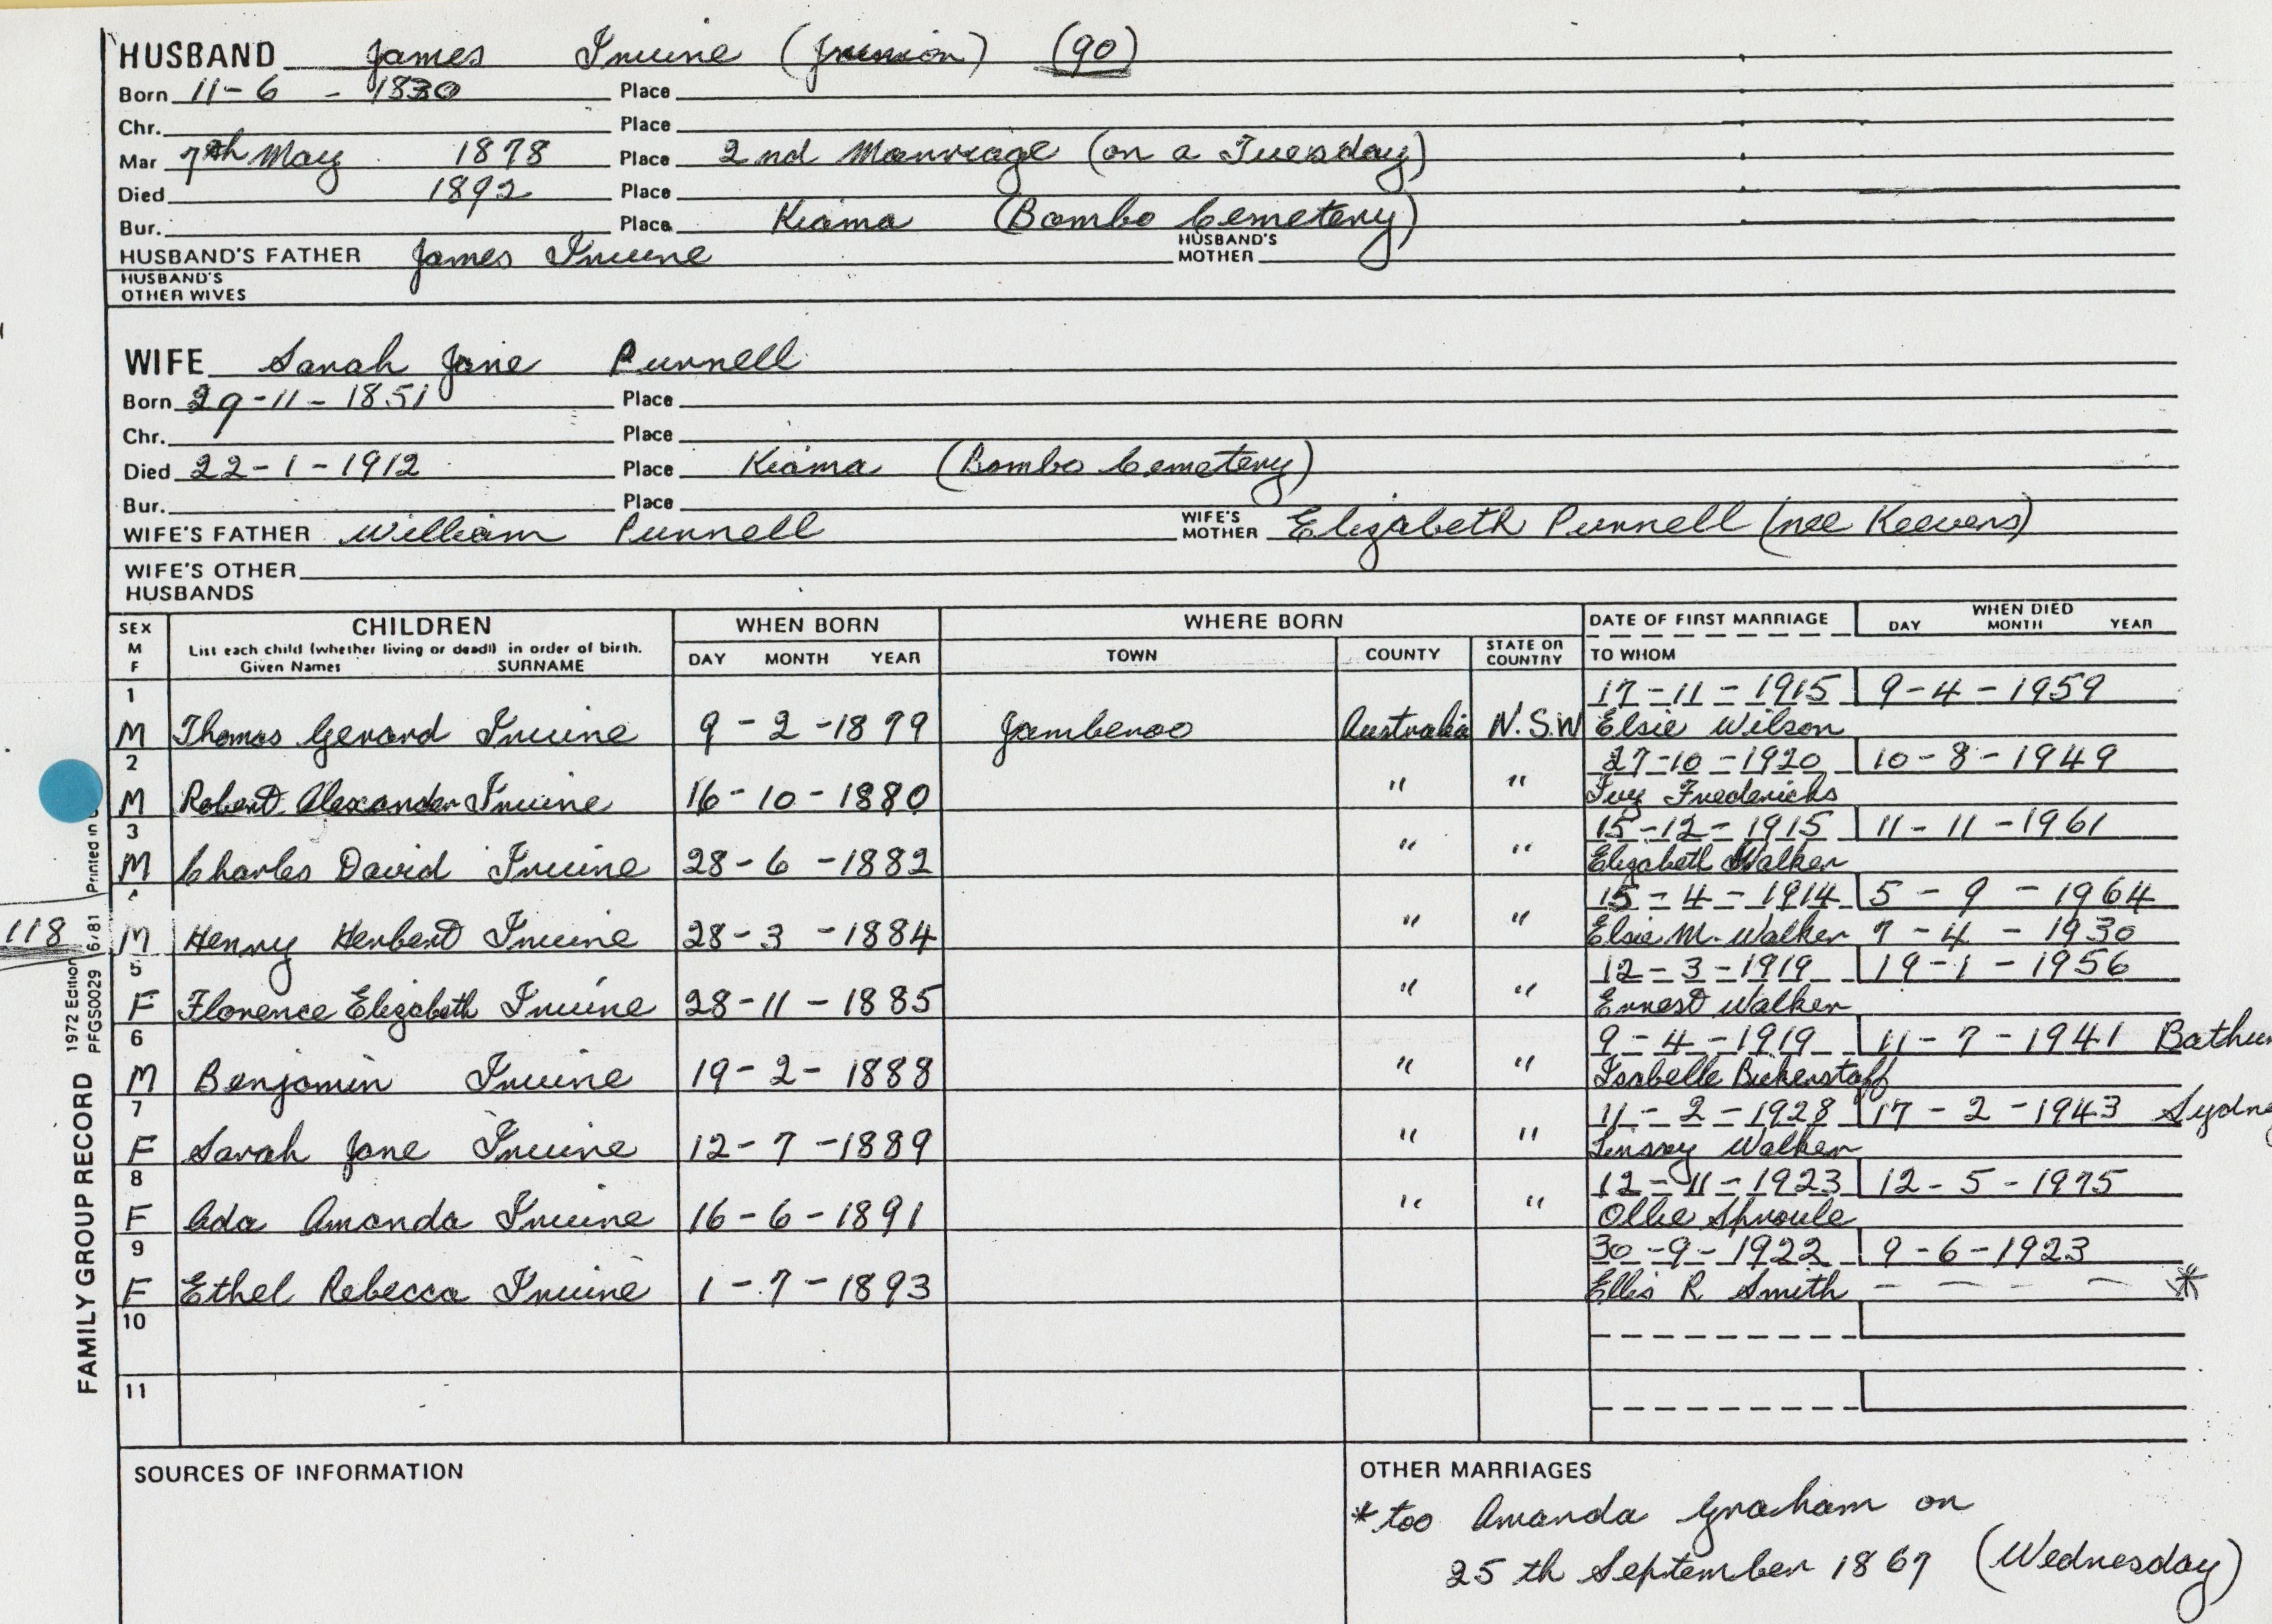 HUSBAND James Irvine (Junior) (90)
Born 11-6-1830 Place
Chr. Place
Mar 7th May 1878 Place 2nd Marriage (on a Tuesday)
Died 1892 Place
Bur. Place Kiama (Bombo Cemetery)
HUSBAND'S FATHER James Irvine HUSBAND'S MOTHER
HUSBAND'S OTHER WIVES
WIFE Sarah Jane Purnell
Born 29-11-1851 Place
Chr. Place
Died 22-1-1912 Place Kiama (Bombo Cemetery)
Bur. Place
WIFE'S FATHER William Purnell WIFE'S MOTHER Elizabeth Purnell (nee Keevers)
WIFE'S OTHER HUSBANDS
SEX M F CHILDREN WHEN BORN WHERE BORN DATE OF FIRST MARRIAGE WHEN DIED
List each child (whether living or dead) in order of birth.
Given Names SURNAME DAY MONTH YEAR TOWN COUNTY STATE OR COUNTRY TO WHOM DAY MONTH YEAR
1 17-11-1915 9-4-1959
M Thomas Gerard Irvine 9-2-1879 Jamberoo Australia N.S.W Elsie Wilson
2 27-10-1920 10-8-1949
M Robert Alexander Irvine 16-10-1880 " " Ivy Fredericks
3 15-12-1915 11-11-1961
M Charles David Irvine 28-6-1882 " " Elizabeth Walker
4 15-4-1914 5-9-1964
118 M Henry Herbert Irvine 28-3-1884 " " Elsie M. Walker 7-4-1930
5 12-3-1919 19-1-1956
F Florence Elizabeth Irvine 28-11-1885 " " Ernest Walker
6 9-4-1919 11-7-1941 Bathur
M Benjamin Irvine 19-2-1888 " " Isabelle Bickerstaff
7 11-2-1928 17-2-1943 Sydne
F Sarah Jane Irvine 12-7-1889 " " Walker
8 12-11-1923 12-5-1975
F Ada Amanda Irvine 16-6-1891 " " Ollie Sproule
9 30-9-1922 9-6-1923
F Ethel Rebecca Irvine 1-7-1893 Ellis R Smith - - - - *
10
11
FAMILY GROUP RECORD 1972 Edition
PFGS0029 6/81 Printed in
SOURCES OF INFORMATION
OTHER MARRIAGES
* too Amanda Graham on
25th September 1867 (Wednesday)